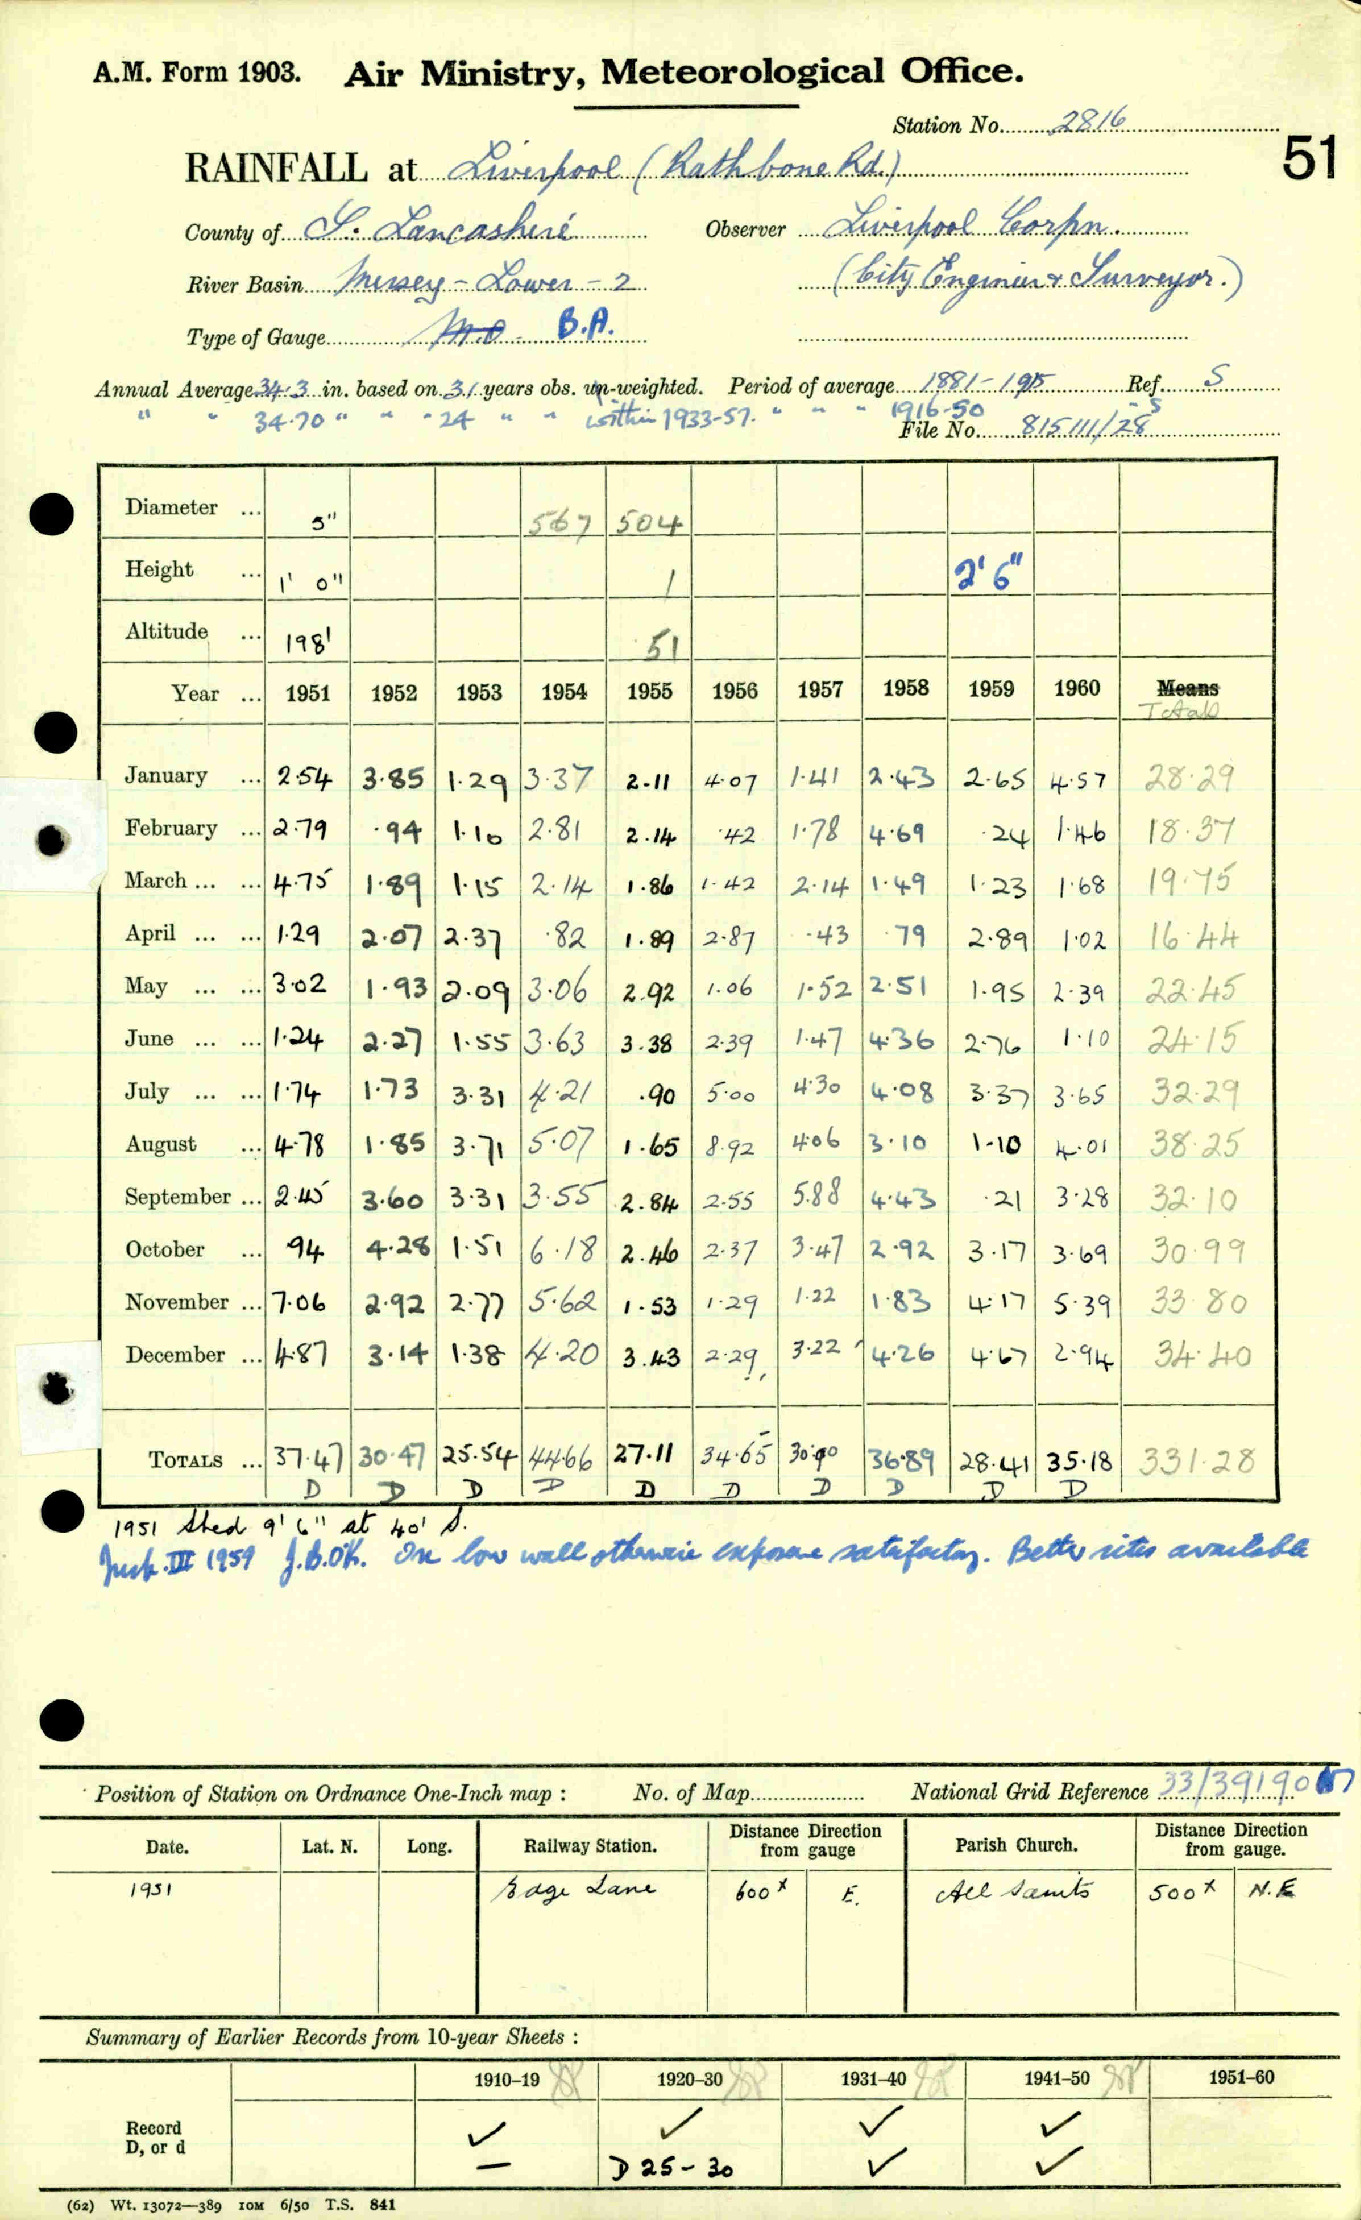 A.M. Form 1903. Air Ministry, Meteorological Office.
Station No. 2816
51
RAINFALL at Liverpool (Rathbone Rd.)
County of S. Lancashire Observer Liverpool Corpn.
River Basin Mersey - Lower - 2 (City Engineer & Surveyor.)
Type of Gauge M.O. B.A.
Annual Average 34.3 in. based on 31 years obs. un-weighted. Period of average 1881-1915 Ref. S
" " 34.70 " " " 24 " " within 1933-57. " " " 1916-50 " S
File No. 815111/28
Diameter ... 5" 567 504
Height ... 1' 0" 1 2' 6"
Altitude ... 198' 51
Year ... 1951 1952 1953 1954 1955 1956 1957 1958 1959 1960 Means
Totals
January ... 2.54 3.85 1.29 3.37 2.11 4.07 1.41 2.43 2.65 4.57 28.29
February ... 2.79 .94 1.10 2.81 2.14 .42 1.78 4.69 .24 1.46 18.37
March ... ... 4.75 1.89 1.15 2.14 1.86 1.42 2.14 1.49 1.23 1.68 19.75
April ... ... 1.29 2.07 2.37 .82 1.89 2.87 .43 .79 2.89 1.02 16.44
May ... ... 3.02 1.93 2.09 3.06 2.92 1.06 1.52 2.51 1.95 2.39 22.45
June ... ... 1.24 2.27 1.55 3.63 3.38 2.39 1.47 4.36 2.76 1.10 24.15
July ... ... 1.74 1.73 3.31 4.21 .90 5.00 4.30 4.08 3.37 3.65 32.29
August ... 4.78 1.85 3.71 5.07 1.65 8.92 4.06 3.10 1.10 4.01 38.25
September ... 2.45 3.60 3.31 3.55 2.84 2.55 5.88 4.43 .21 3.28 32.10
October ... 94 4.28 1.51 6.18 2.46 2.37 3.47 2.92 3.17 3.69 30.99
November ... 7.06 2.92 2.77 5.62 1.53 1.29 1.22 1.83 4.17 5.39 33.80
December ... 4.87 3.14 1.38 4.20 3.43 2.29 3.22 4.26 4.67 2.94 34.40
TOTALS ... 37.47 30.47 25.54 44.66 27.11 34.65 30.90 36.89 28.41 35.18 331.28
D D D D D D D D D D
1951 Shed 9' 6" at 40' S.
III 1959 J.B.O'K. On low wall otherwise exposure satisfactory. Better sites available
Position of Station on Ordnance One-Inch map : No. of Map National Grid Reference 33/39190
Date. Lat. N. Long. Railway Station. Distance Direction from gauge Parish Church. Distance Direction from gauge.
1951 Edge Lane 600x E. All Saints 500x N.E
Summary of Earlier Records from 10-year Sheets :
1910-19 1920-30 1931-40 1941-50 1951-60
Record ✓ ✓ ✓ ✓
D, or d — D 25-30 ✓ ✓
(62) Wt. 13072—389 10M 6/50 T.S. 841